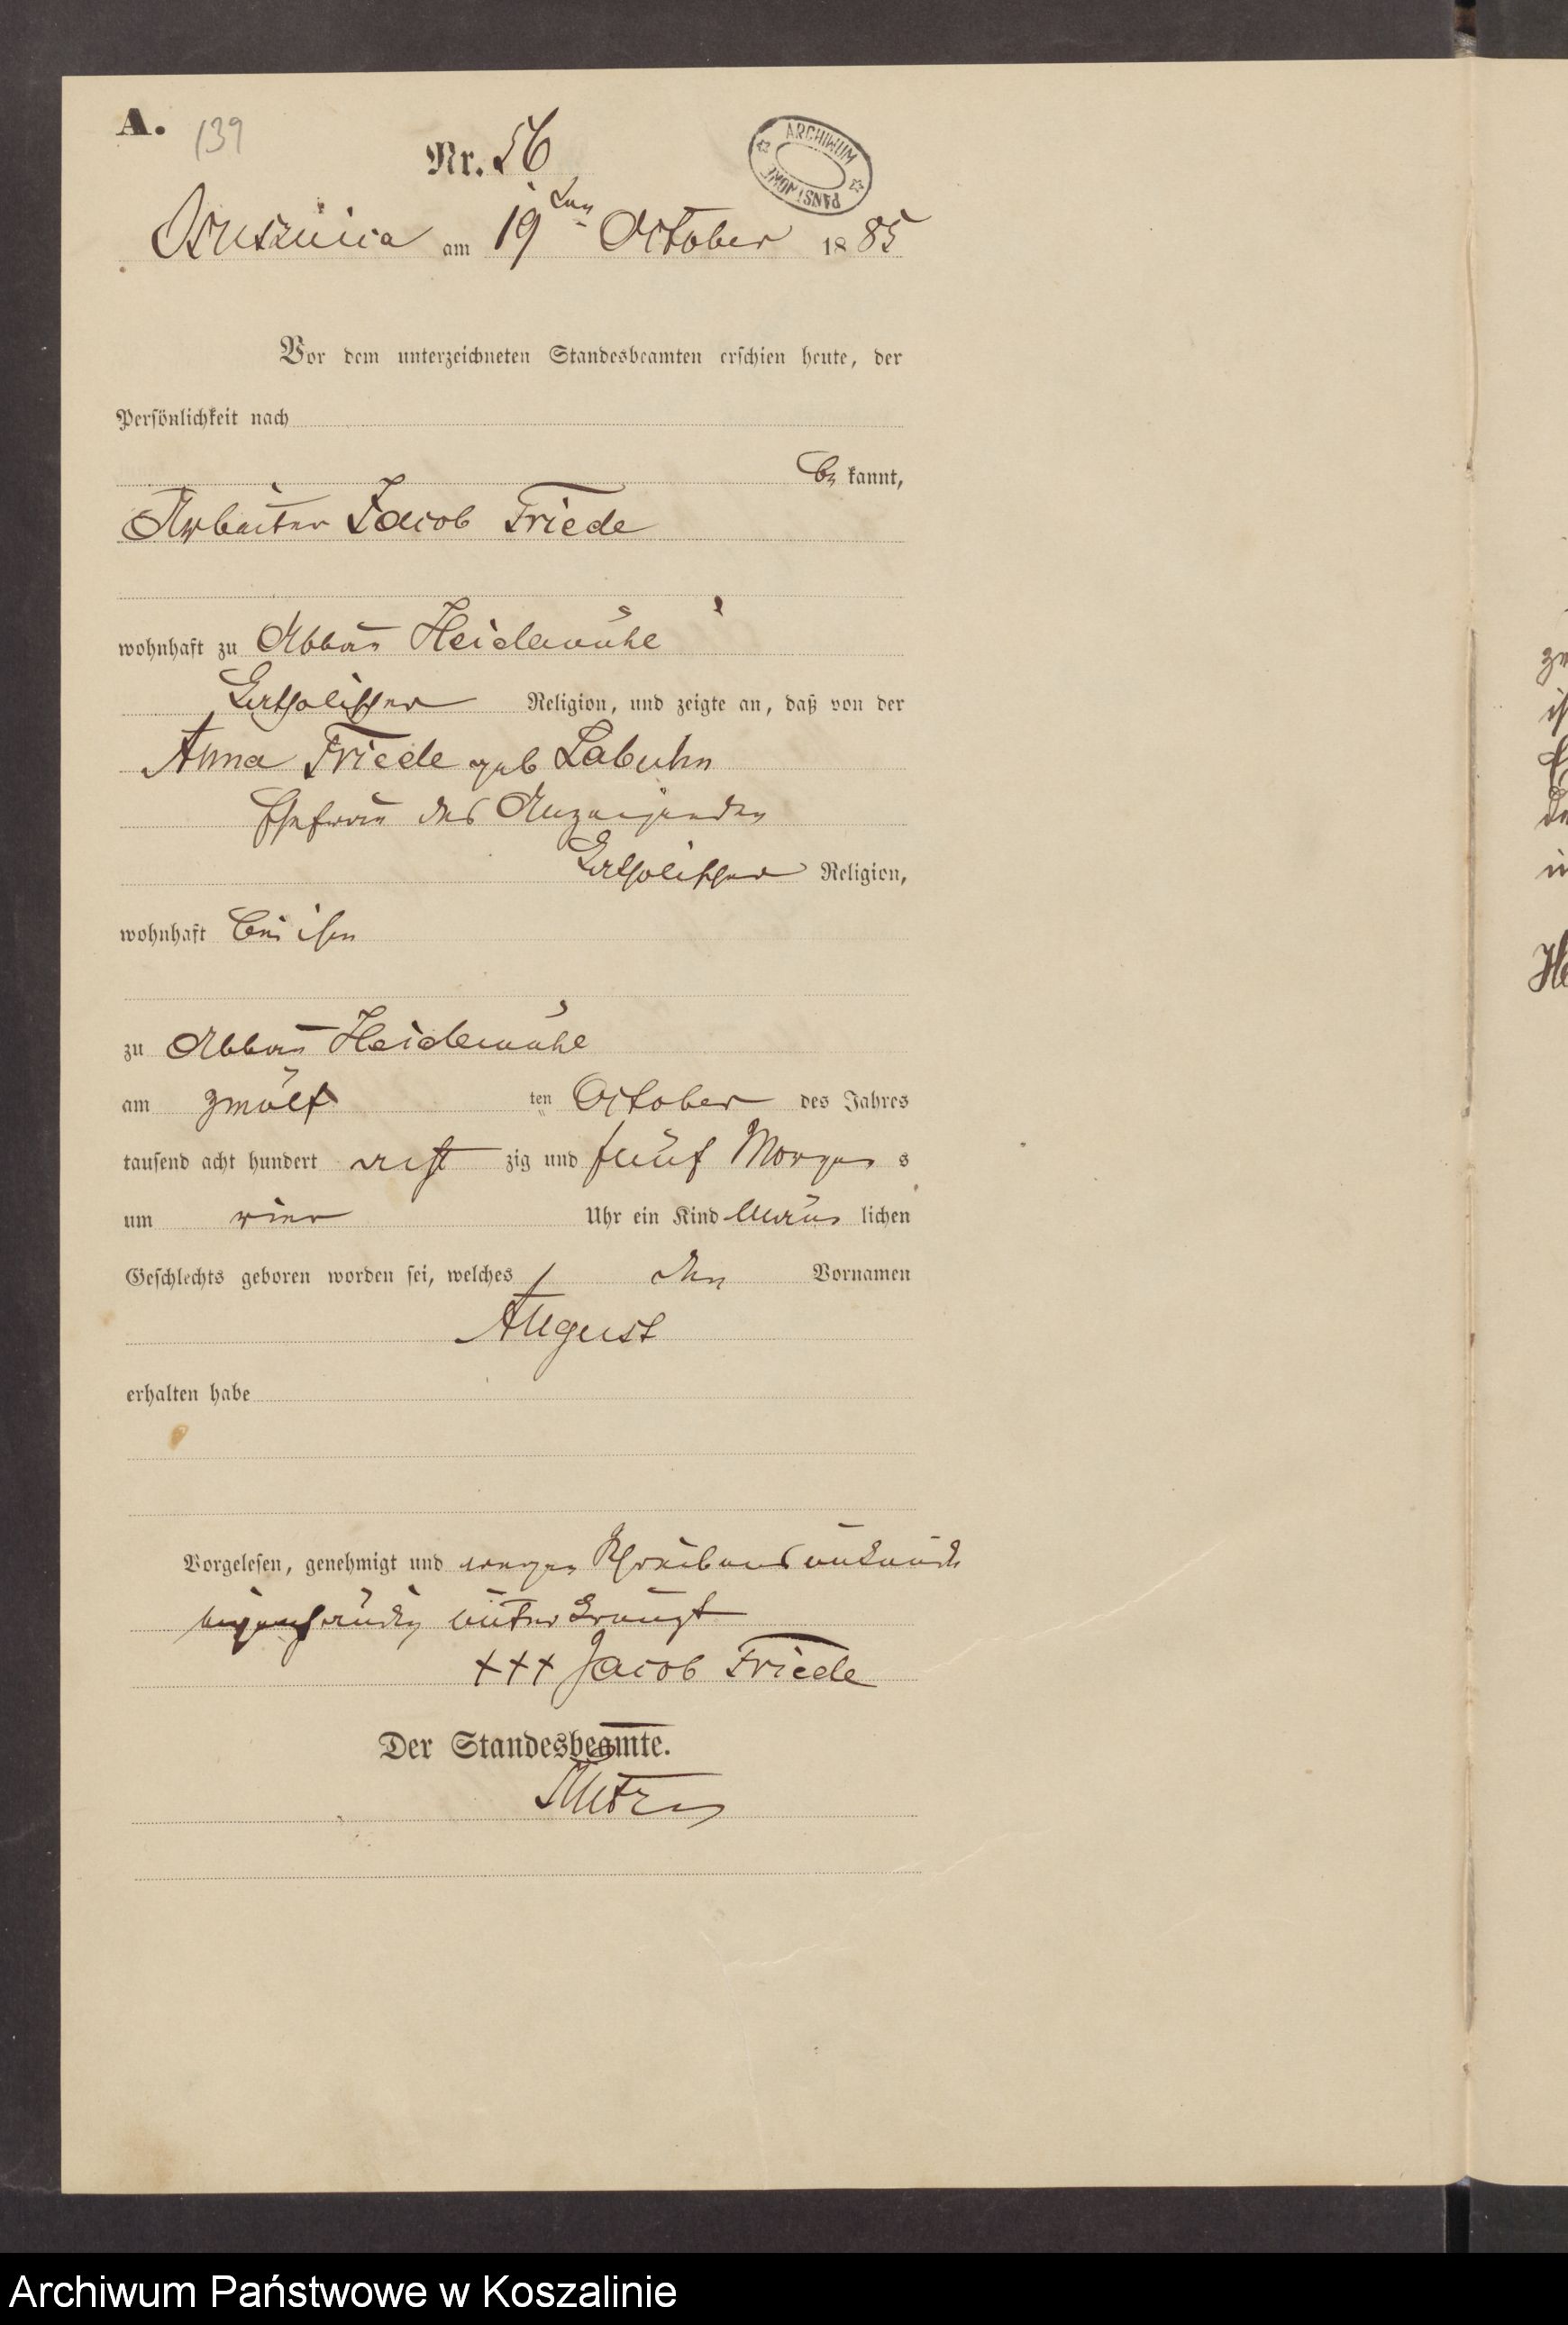 A. 139
Nr. 56
ARCHIWUM PAŃSTWOWE
am 19ten October 1885
Vor dem unterzeichneten Standesbeamten erschien heute, der
Persönlichkeit nach
be kannt,
Arbeiter Jacob Friede
wohnhaft zu Abbau Heidemühl
katholischer Religion, und zeigte an, daß von der
Anna Friede geb Labuhn
Ehefrau des Anzeigenden
katholischer Religion,
wohnhaft bei ihm
zu Abbau Heidemühl
am zwölf ten October des Jahres
tausend acht hundert acht zig und fünf Morgen s
um vier Uhr ein Kind männ lichen
Geschlechts geboren worden sei, welches den Vornamen
August
erhalten habe
Vorgelesen, genehmigt und wegen Schreibens unkunde
unterkreuzt
+++ Jacob Friede
Der Standesbeamte.
Archiwum Państwowe w Koszalinie